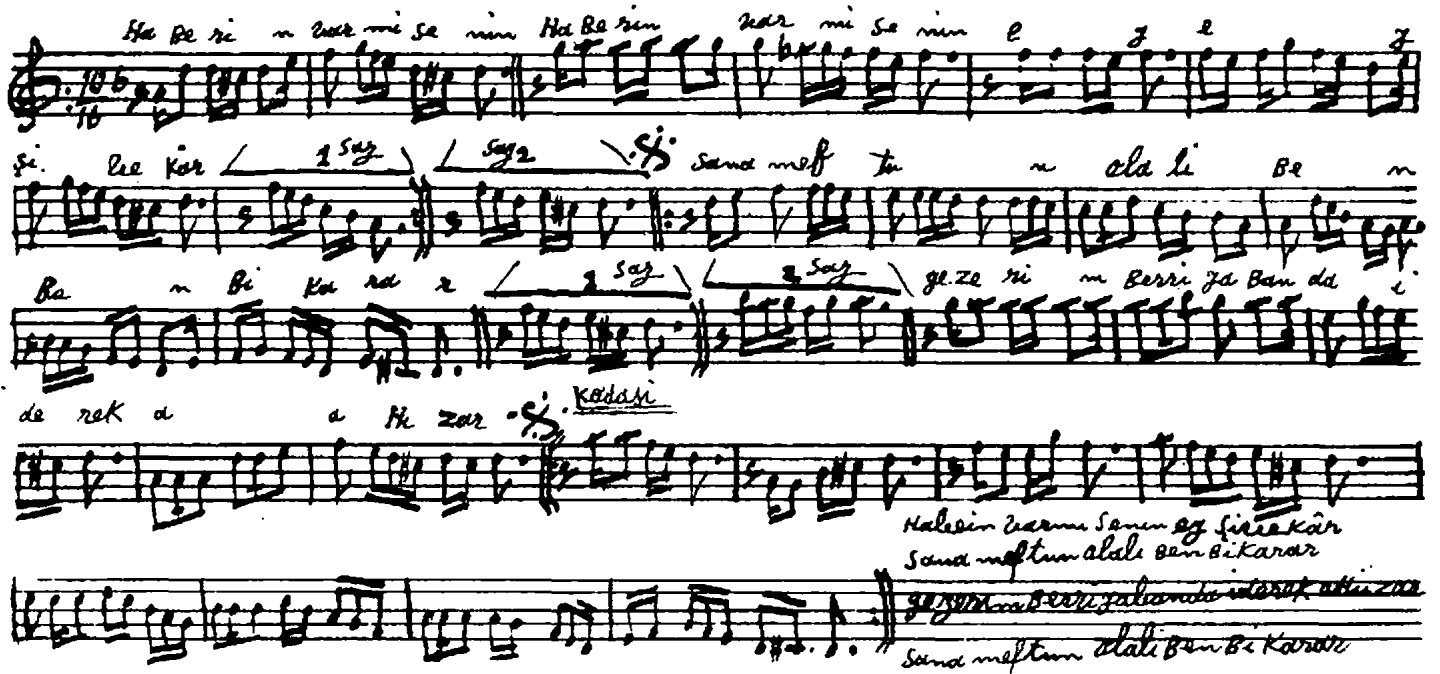 Ha Be ri n var mi se nin Ha Be rin var mi se nin e y e y
10
16
şi. ve kâr 1 saz saz 2 Sana mef tu n ola li Be n
Be n Bi Ka ra r 1 saz 2 saz geze ri m Berri ya Ban da i
de rek a a Hi zar
Haberin varmı Senin ey şivekâr
Sana meftun olali Ben Bikarar
gezerim Berri yabanda iderek ahü zar
Sana meftun olali Ben Bi Karar